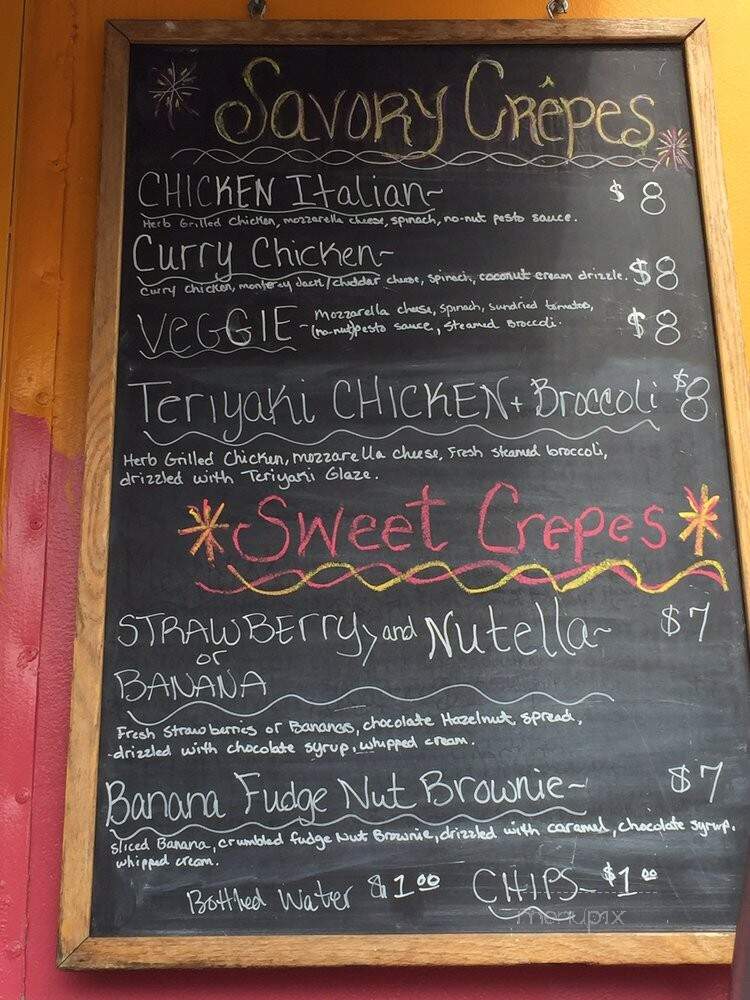 Savory Crêpes
CHICKEN Italian~ $8
Herb Grilled Chicken, mozzarella cheese, spinach, no-nut pesto sauce.
Curry Chicken~ $8
Curry chicken, monterey Jack/cheddar cheese, spinach, coconut cream drizzle.
VEGGIE ~ $8
Mozzarella cheese, spinach, sundried tomatoes,
(no-nut) pesto sauce, steamed Broccoli.
Teriyaki CHICKEN + Broccoli $8
Herb Grilled Chicken, mozzarella cheese, Fresh steamed broccoli,
drizzled with Teriyaki Glaze.
Sweet Crepes
STRAWBERRY and Nutella~ $7
or
BANANA
Fresh Strawberries or Bananas, chocolate Hazelnut, spread,
drizzled with chocolate syrup, whipped cream.
Banana Fudge Nut Brownie~ $7
sliced Banana, crumbled fudge Nut Brownie, drizzled with caramel, chocolate syrup,
whipped cream.
Bottled Water $1.00 CHIPS~ $1.00
menupix